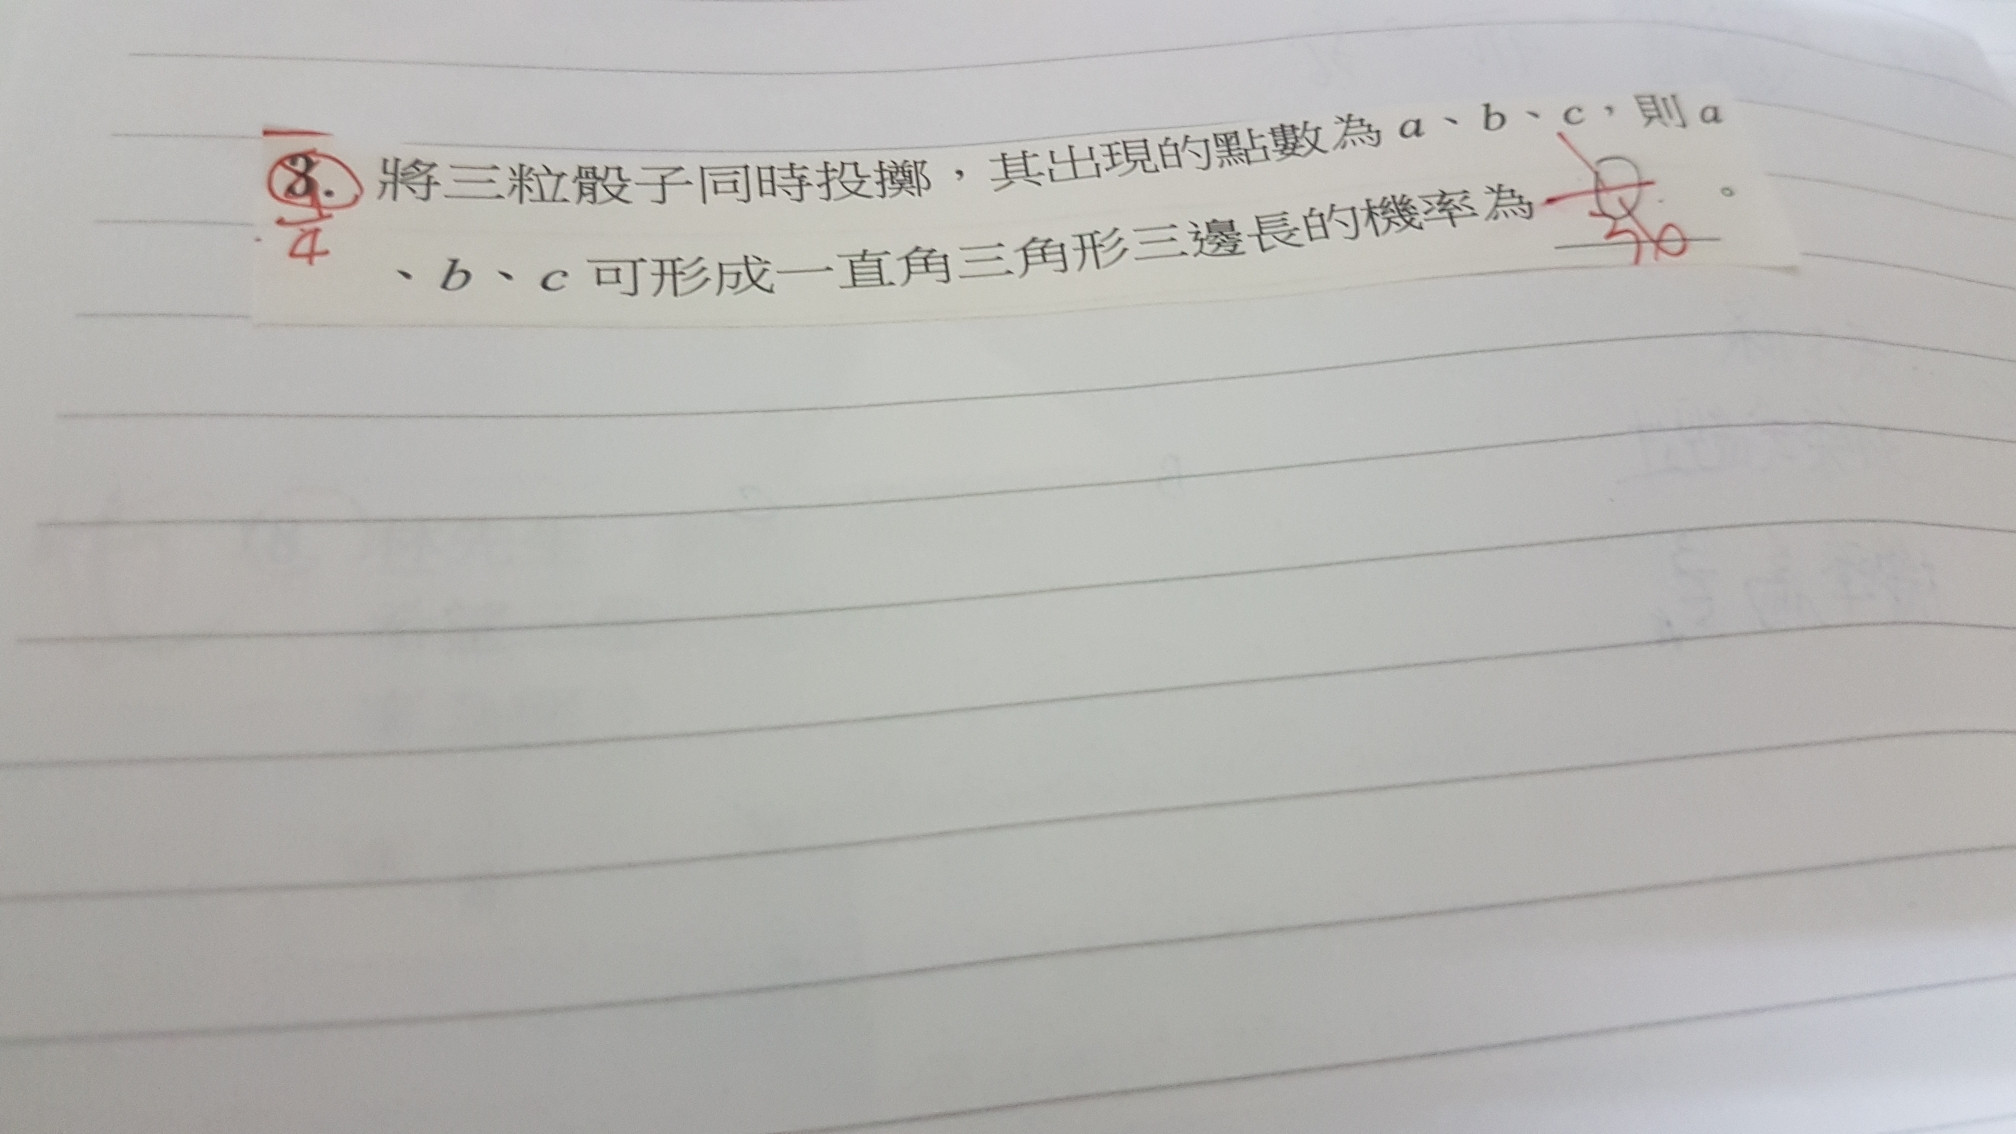 3. 將三粒骰子同時投擲，其出現的點數為 a、b、c，則 a
、b、c 可形成一直角三角形三邊長的機率為 。
4